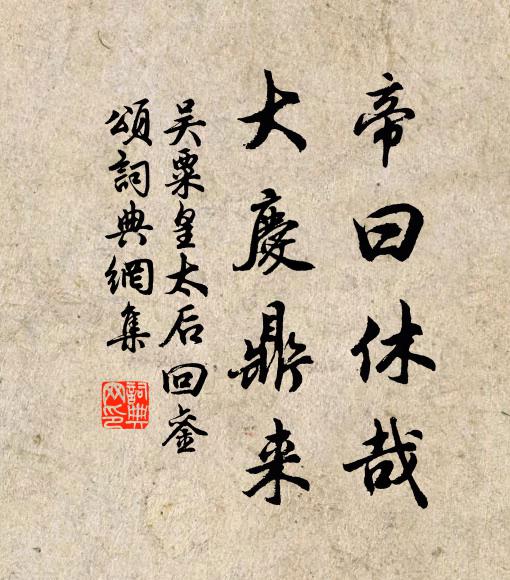 帝曰休哉
大慶鼎来
吴粟皇太后回銮
頌詞典網集
詞典
网印